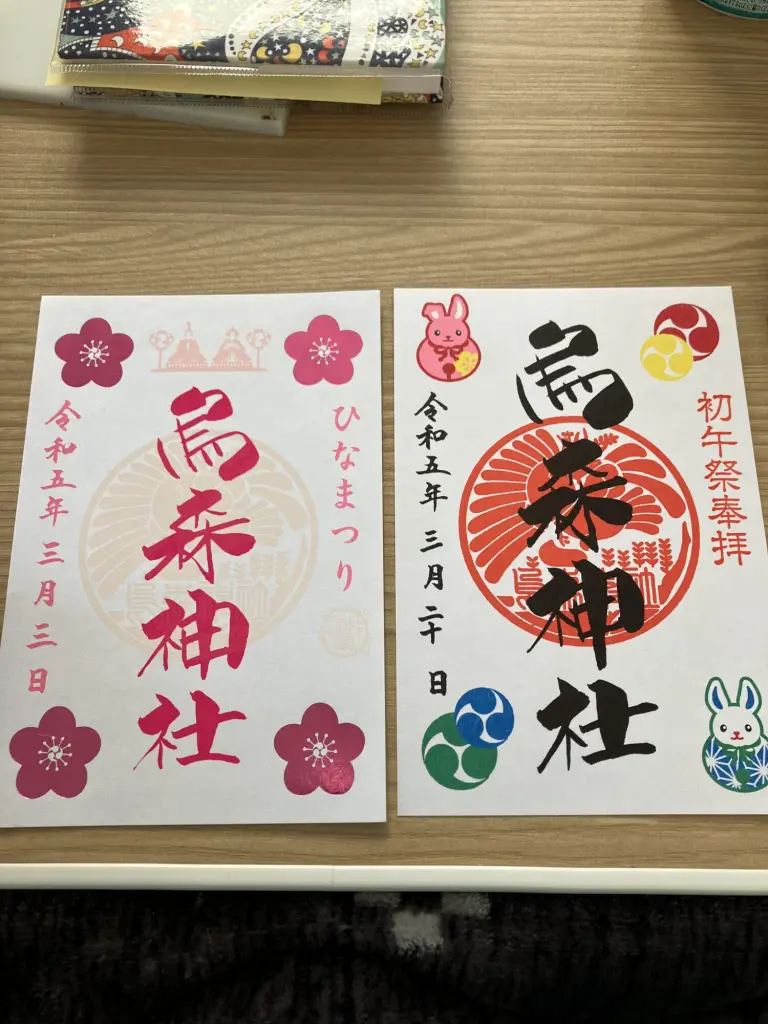 ひなまつり
烏森神社
令和五年 三月 三日
初午祭奉拝
烏森神社
令和五年 三月 二十 日